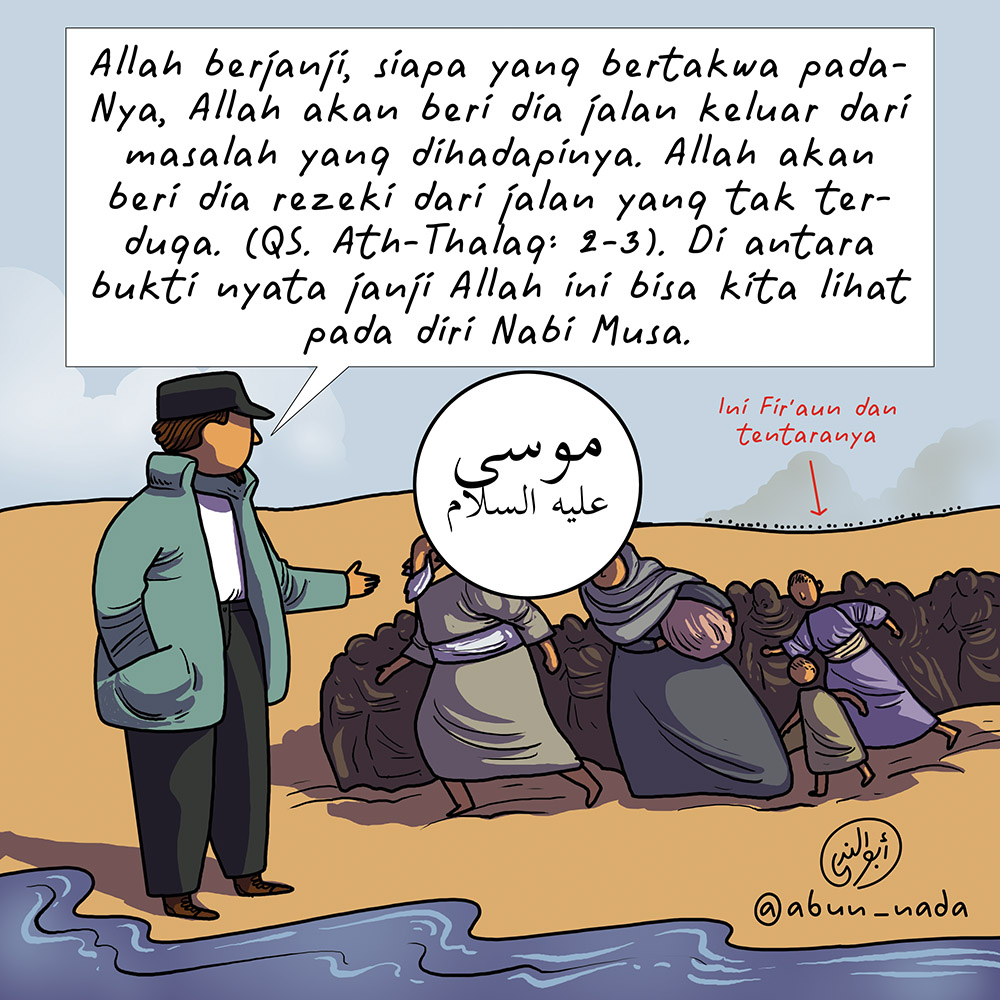 Allah berjanji, siapa yang bertakwa pada-
Nya, Allah akan beri dia jalan keluar dari
masalah yang dihadapinya. Allah akan
beri dia rezeki dari jalan yang tak ter-
duga. (QS. Ath-Thalaq: 2-3). Di antara
bukti nyata janji Allah ini bisa kita lihat
pada diri Nabi Musa.
Ini Fir'aun dan
tentaranya
موسى
عليه السلام
أبو الندى
@abun_nada